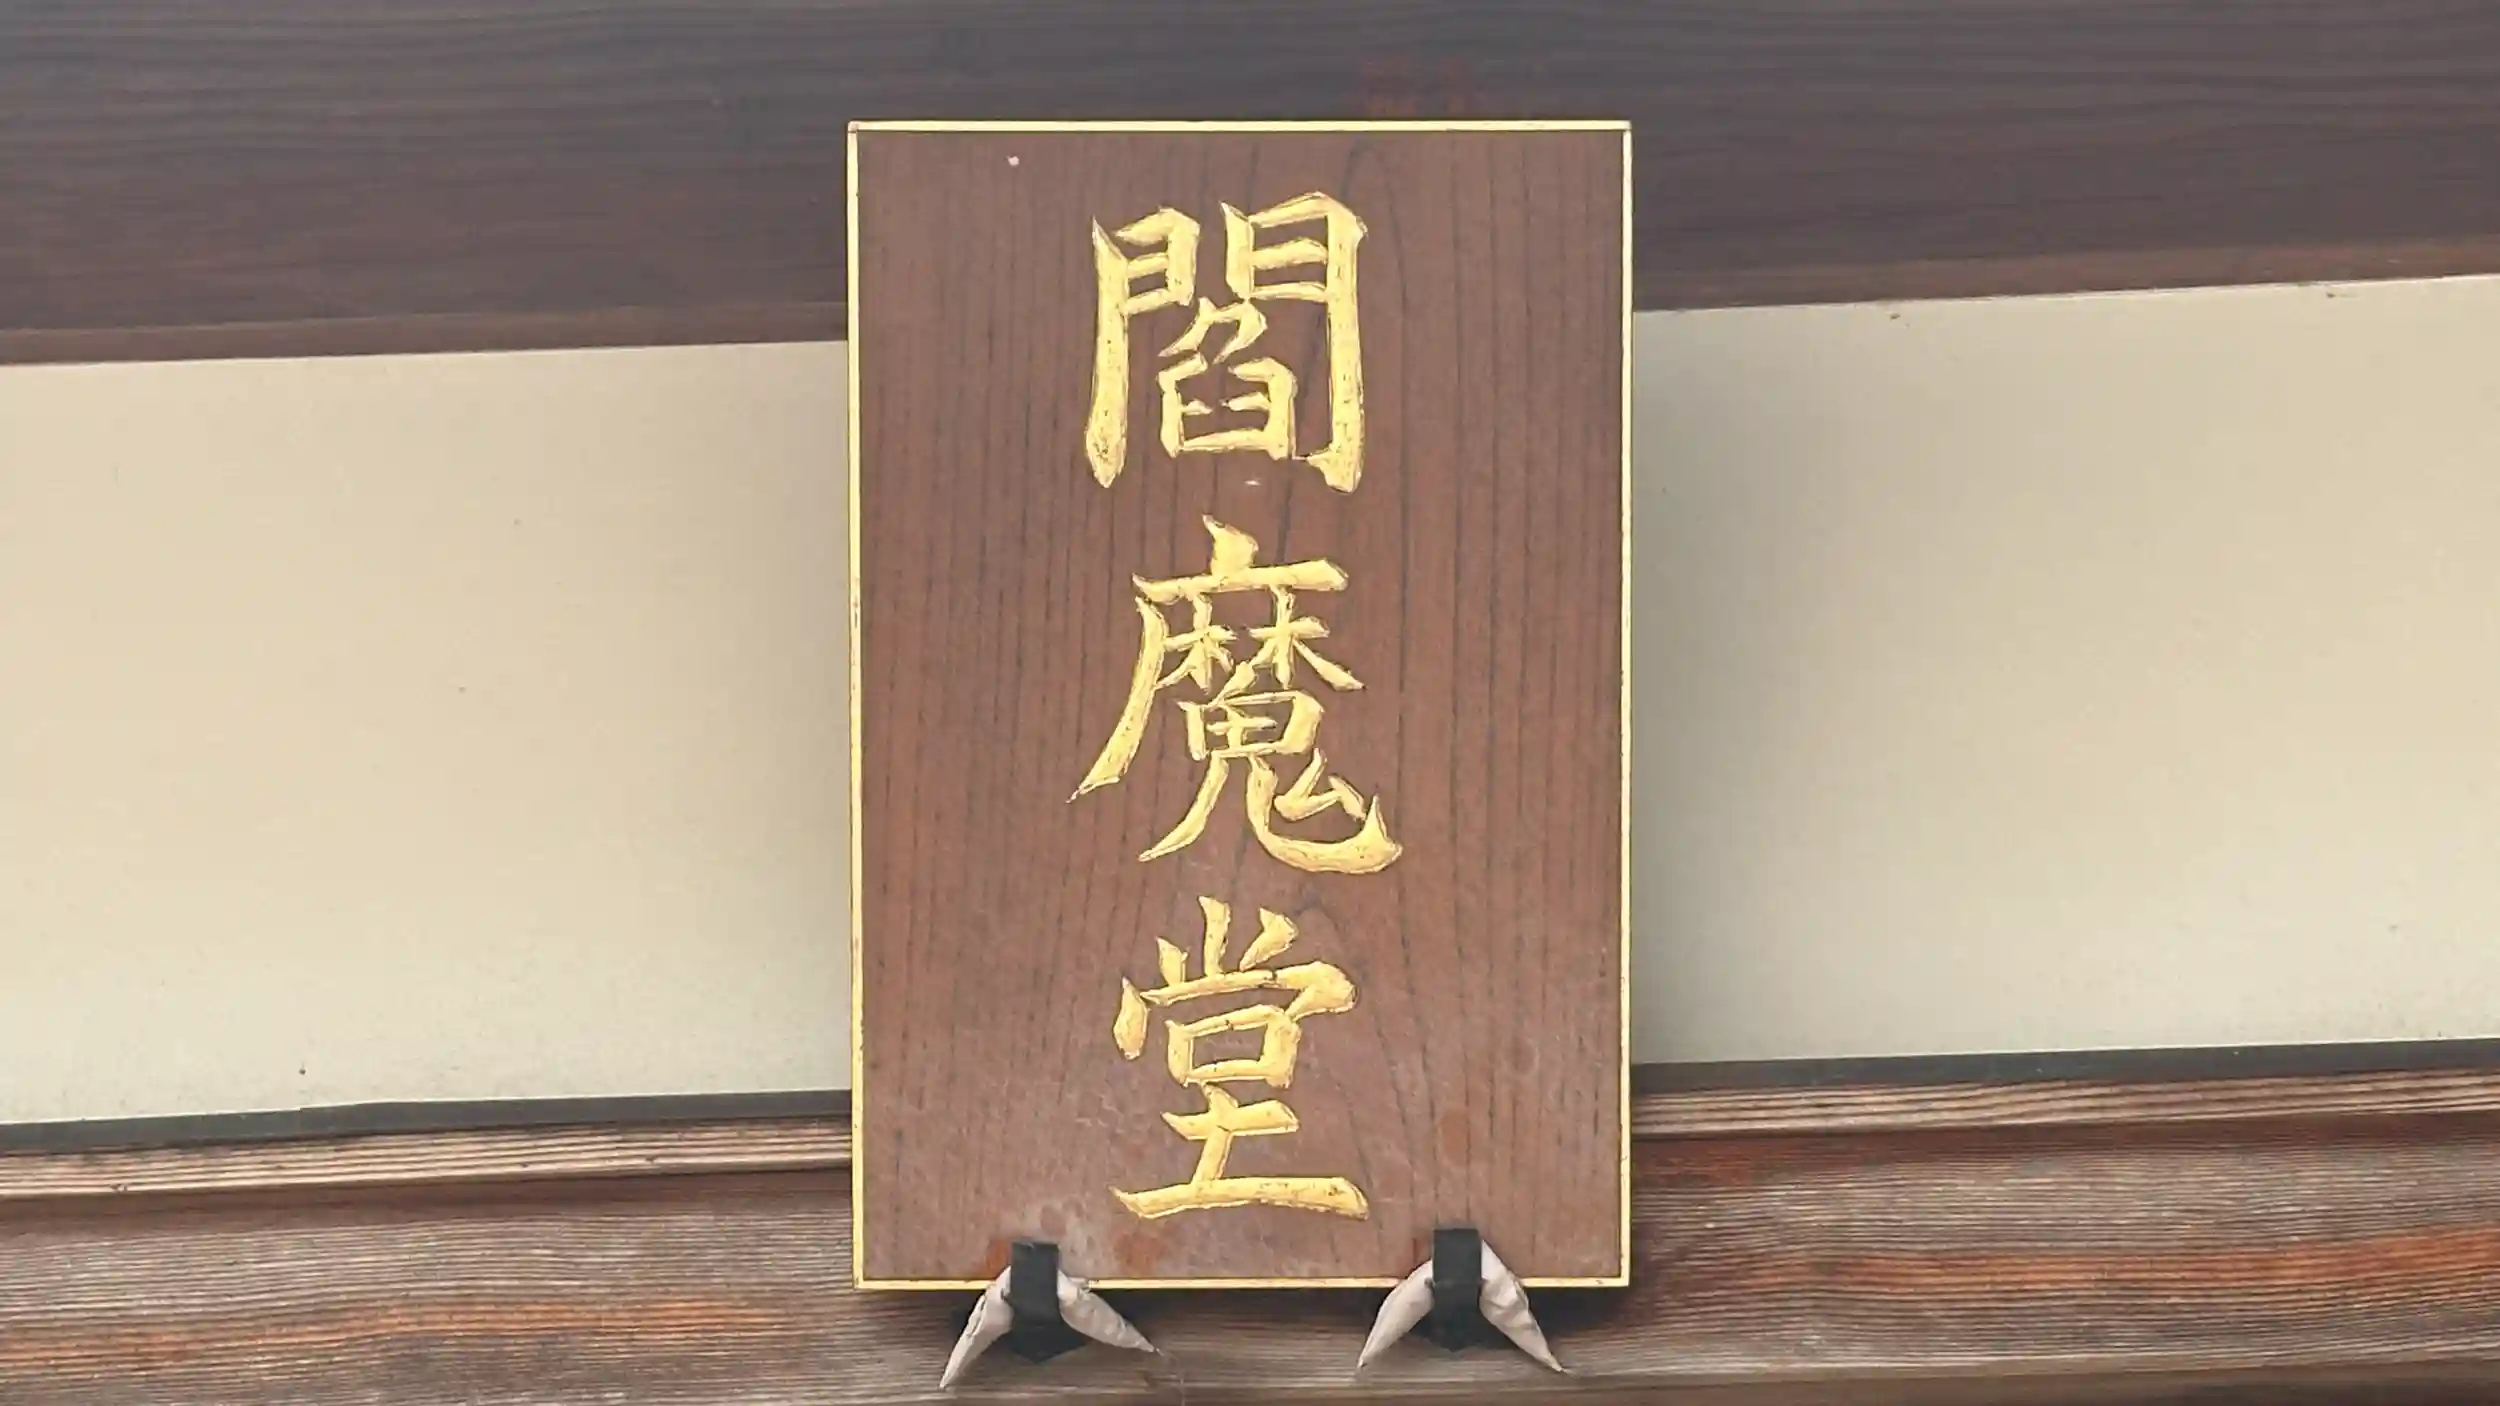 閻魔堂